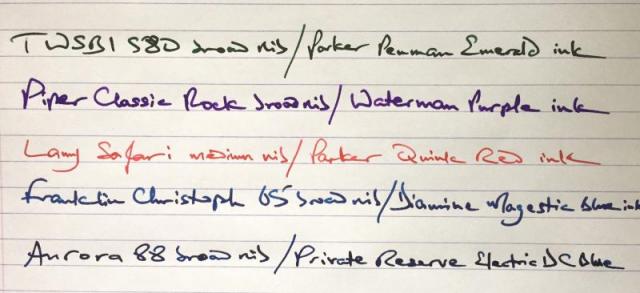 TWSBI 580 broad nib/Parker Penman Emerald ink
Piper Classic Rock broad nib/Waterman Purple ink
Lamy Safari medium nib/Parker Quink Red ink
Franklin Christoph 65 broad nib/Diamine Magestic blue ink
Aurora 88 broad nib/Private Reserve Electric DC Blue